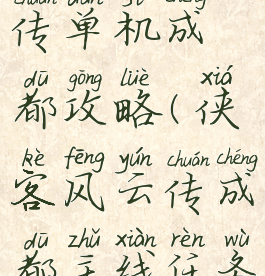 传单机成
dū gōng lüè xiá
都攻略(侠
kè fēng yún chuán chéng
客风云传成
dū zhǔ xiàn rèn wù
都主线任务